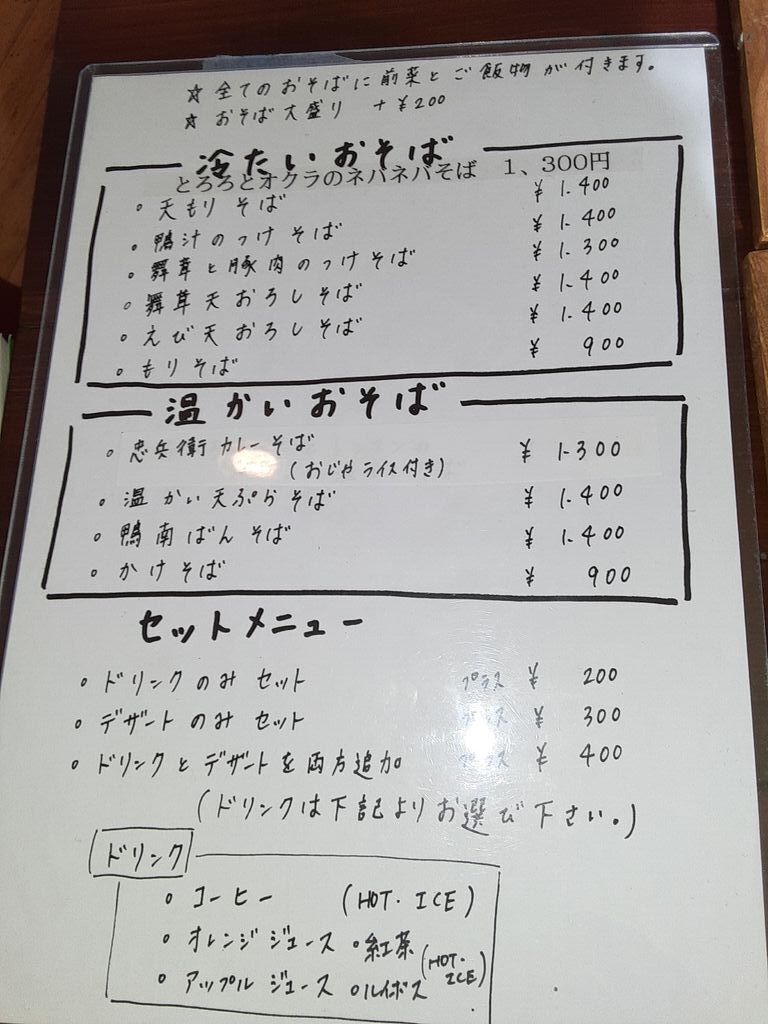 ☆ 全てのおそばに前菜とご飯物が付きます。
☆ おそば大盛り +¥200
冷たいおそば
とろろとオクラのネバネバそば 1、300円
• 天もりそば ¥ 1.400
• 鴨汁のつけそば ¥ 1.400
• 舞茸と豚肉のつけそば ¥ 1.300
• 舞茸天おろしそば ¥ 1.400
• えび天おろしそば ¥ 1.400
• もりそば ¥ 900
温かいおそば
• 忠兵衛カレーそば ¥ 1.300
(おじやライス付き)
• 温かい天ぷらそば ¥ 1.400
• 鴨南ばんそば ¥ 1.400
• かけそば ¥ 900
セットメニュー
• ドリンクのみセット プラス ¥ 200
• デザートのみセット プラス ¥ 300
• ドリンクとデザートを両方追加 プラス ¥ 400
(ドリンクは下記よりお選び下さい。)
ドリンク
• コーヒー (HOT・ICE)
• オレンジジュース • 紅茶
• アップルジュース • ルイボス (HOT・ICE)